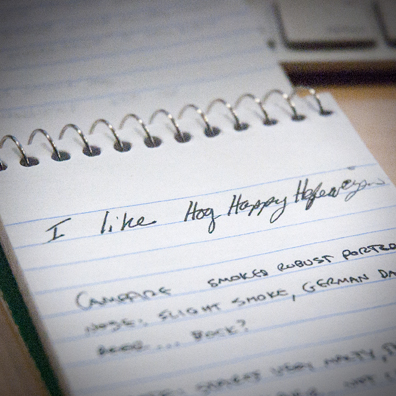 I like Hog Happy Hefeweizen
CAMPFIRE SMOKED ROBUST PORTER
NOSE: SLIGHT SMOKE, GERMAN DA
BEER ... BOCK?
VERY MALTY,